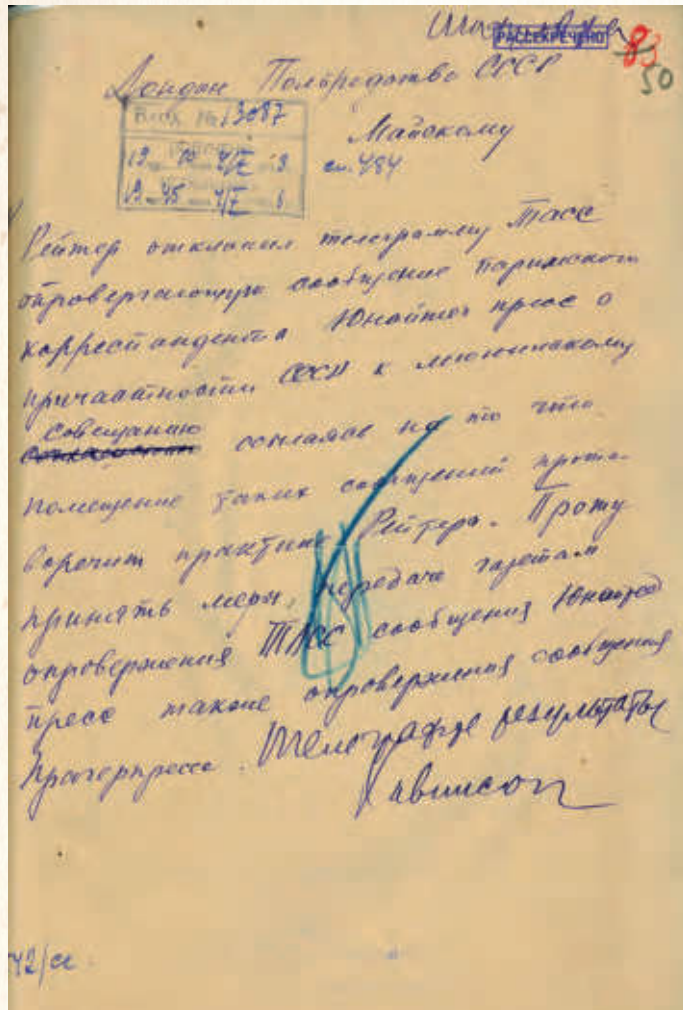 РАССЕКРЕЧЕНО
83
50
Лондон Полпредство СССР
Вход № 13087
Майскому
сн. 484
Рейтер отклонил телеграмму Тасс
опровергающую сообщение парижского
корреспондента Юнайтед пресс о
причастности СССР к мюнхенскому
совещанию
ссылаясь на то что
помещение таких сообщений проти-
воречит практике Рейтера. Прошу
принять меры, передаче газетам
опровержения ТАСС сообщения Юнайтед
пресс также опровержения сообщения
Прагерпрессе. Телеграфте результаты
Хавинсон
42/сс